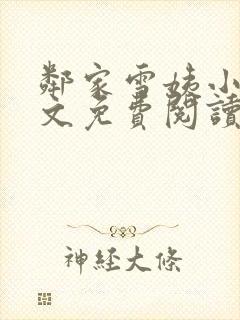 鄰家雪姨小
文免費閱讀
神經大條